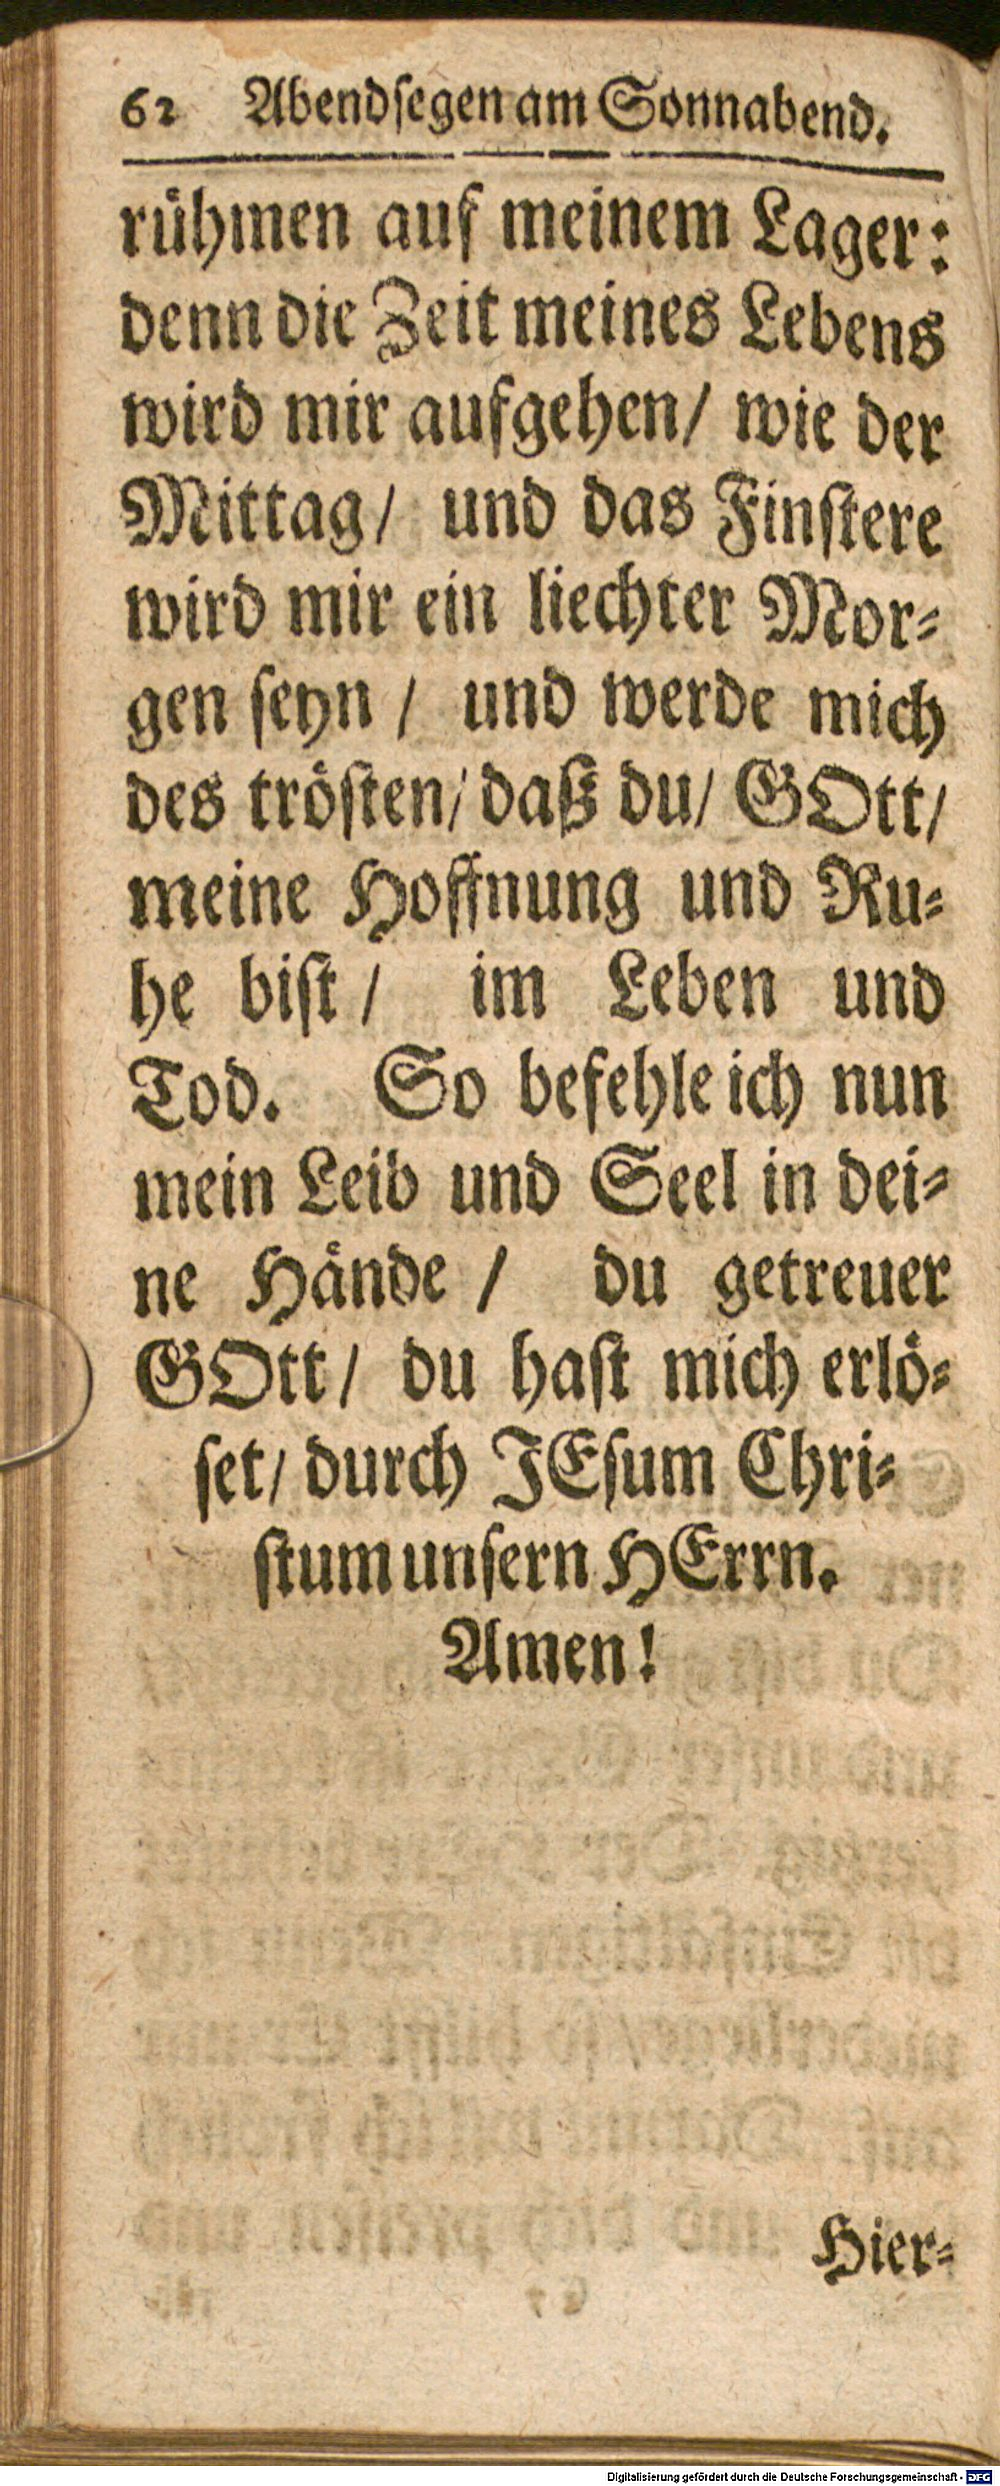 62 Abendsegen am Sonnabend.
rühmen auf meinem Lager:
denn die Zeit meines Lebens
wird mir aufgehen/ wie der
Mittag/ und das Finstere
wird mir ein liechter Mor-
gen seyn / und werde mich
des trösten/ daß du/ GOtt/
meine Hoffnung und Ru-
he bist / im Leben und
Tod. So befehle ich nun
mein Leib und Seel in dei-
ne Hände / du getreuer
GOtt/ du hast mich erlö-
set/ durch JEsum Chri-
stum unsern HErrn.
Amen!
Hier-
Digitalisierung gefördert durch die Deutsche Forschungsgemeinschaft - DFG